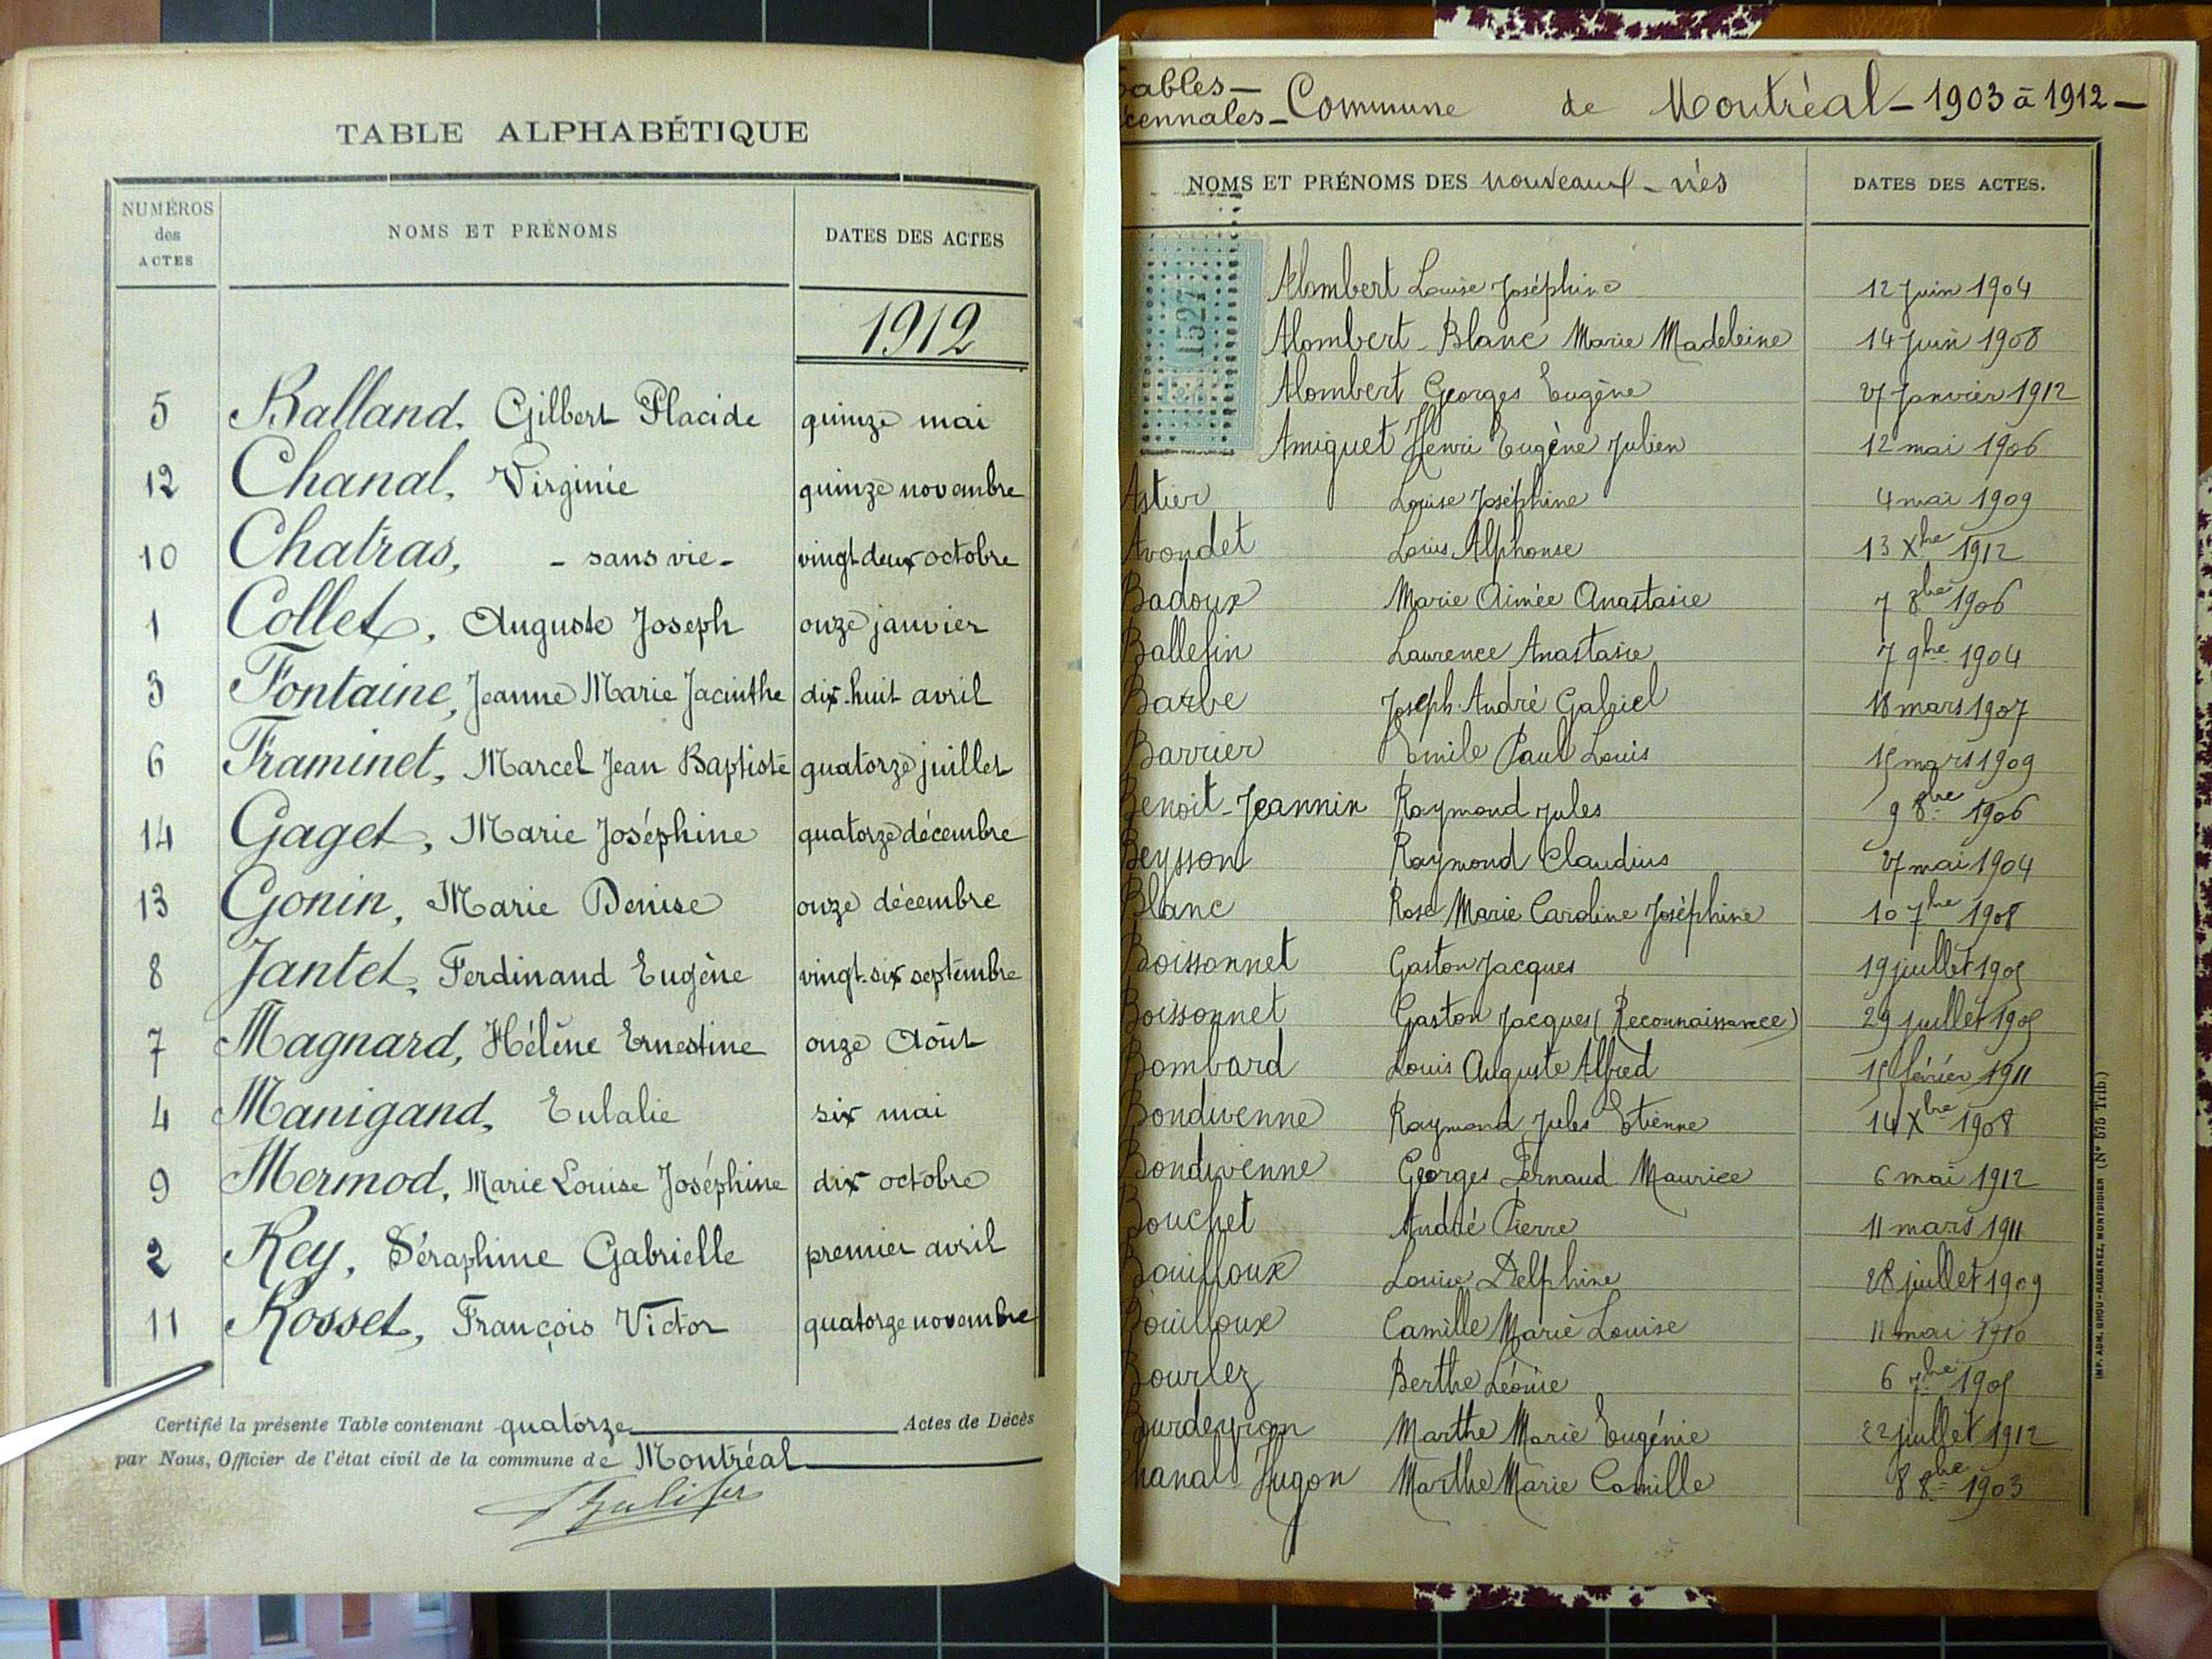 TABLE ALPHABÉTIQUE
NUMÉROS des ACTES NOMS ET PRÉNOMS DATES DES ACTES
1912
5 Balland, Gilbert Placide quinze mai
12 Chanal, Virginie quinze novembre
10 Chatras, - sans vie - vingt-deux octobre
1 Collet, Auguste Joseph onze janvier
3 Fontaine, Jeanne Marie Jacinthe dix-huit avril
6 Framinet, Marcel Jean Baptiste quatorze juillet
14 Gaget, Marie Joséphine quatorze décembre
13 Gonin, Marie Denise onze décembre
8 Jantet, Ferdinand Eugène vingt-six septembre
7 Magnard, Hélène Ernestine onze Août
4 Manigand, Eulalie six mai
9 Mermod, Marie Louise Joséphine dix octobre
2 Rey, Séraphine Gabrielle premier avril
11 Rosset, François Victor quatorze novembre
Certifié la présente Table contenant quatorze Actes de Décès
par Nous, Officier de l'état civil de la commune de Montréal
Tables — Décennales — Commune de Montréal — 1903 à 1912 —
NOMS ET PRÉNOMS DES nouveaux-nés DATES DES ACTES.
1527
Alombert Louise Joséphine 12 Juin 1904
Alombert-Blanc Marie Madeleine 14 Juin 1908
Alombert Georges Eugène 27 Janvier 1912
Amiguet Henri Eugène Julien 12 mai 1906
Astier Louise Joséphine 4 mai 1909
Avondet Louis Alphonse 13 Xbre 1912
Badoux Marie Aimée Anastasie 7 8bre 1906
Ballefin Laurence Anastasie 7 9bre 1904
Barbe Joseph André Gabriel 18 mars 1907
Barrier Emile Paul Louis 15 mars 1909
Benoit-Jeannin Raymond Jules 9 8bre 1906
Beysson Raymond Claudius 27 mai 1904
Blanc Rose Marie Caroline Joséphine 10 7bre 1908
Boissonnet Gaston Jacques 19 juillet 1905
Boissonnet Gaston Jacques (Reconnaissance) 29 juillet 1905
Bombard Louis Auguste Alfred 15 février 1911
Bondivenne Raymond Jules Etienne 14 Xbre 1908
Bondivenne Georges Fernand Maurice 6 mai 1912
Bouchet André Pierre 11 mars 1911
Bouilloux Louise Delphine 28 juillet 1909
Bouilloux Camille Marie Louise 11 mai 1910
Bourlez Berthe Léonie 6 7bre 1905
Bourdeyron Marthe Marie Eugénie 22 juillet 1912
Chanal-Hugon Marthe Marie Camille 8 8bre 1903
IMP. ADM. GROU-RADENEZ, MONTDIDIER (N° 575 Trib.)